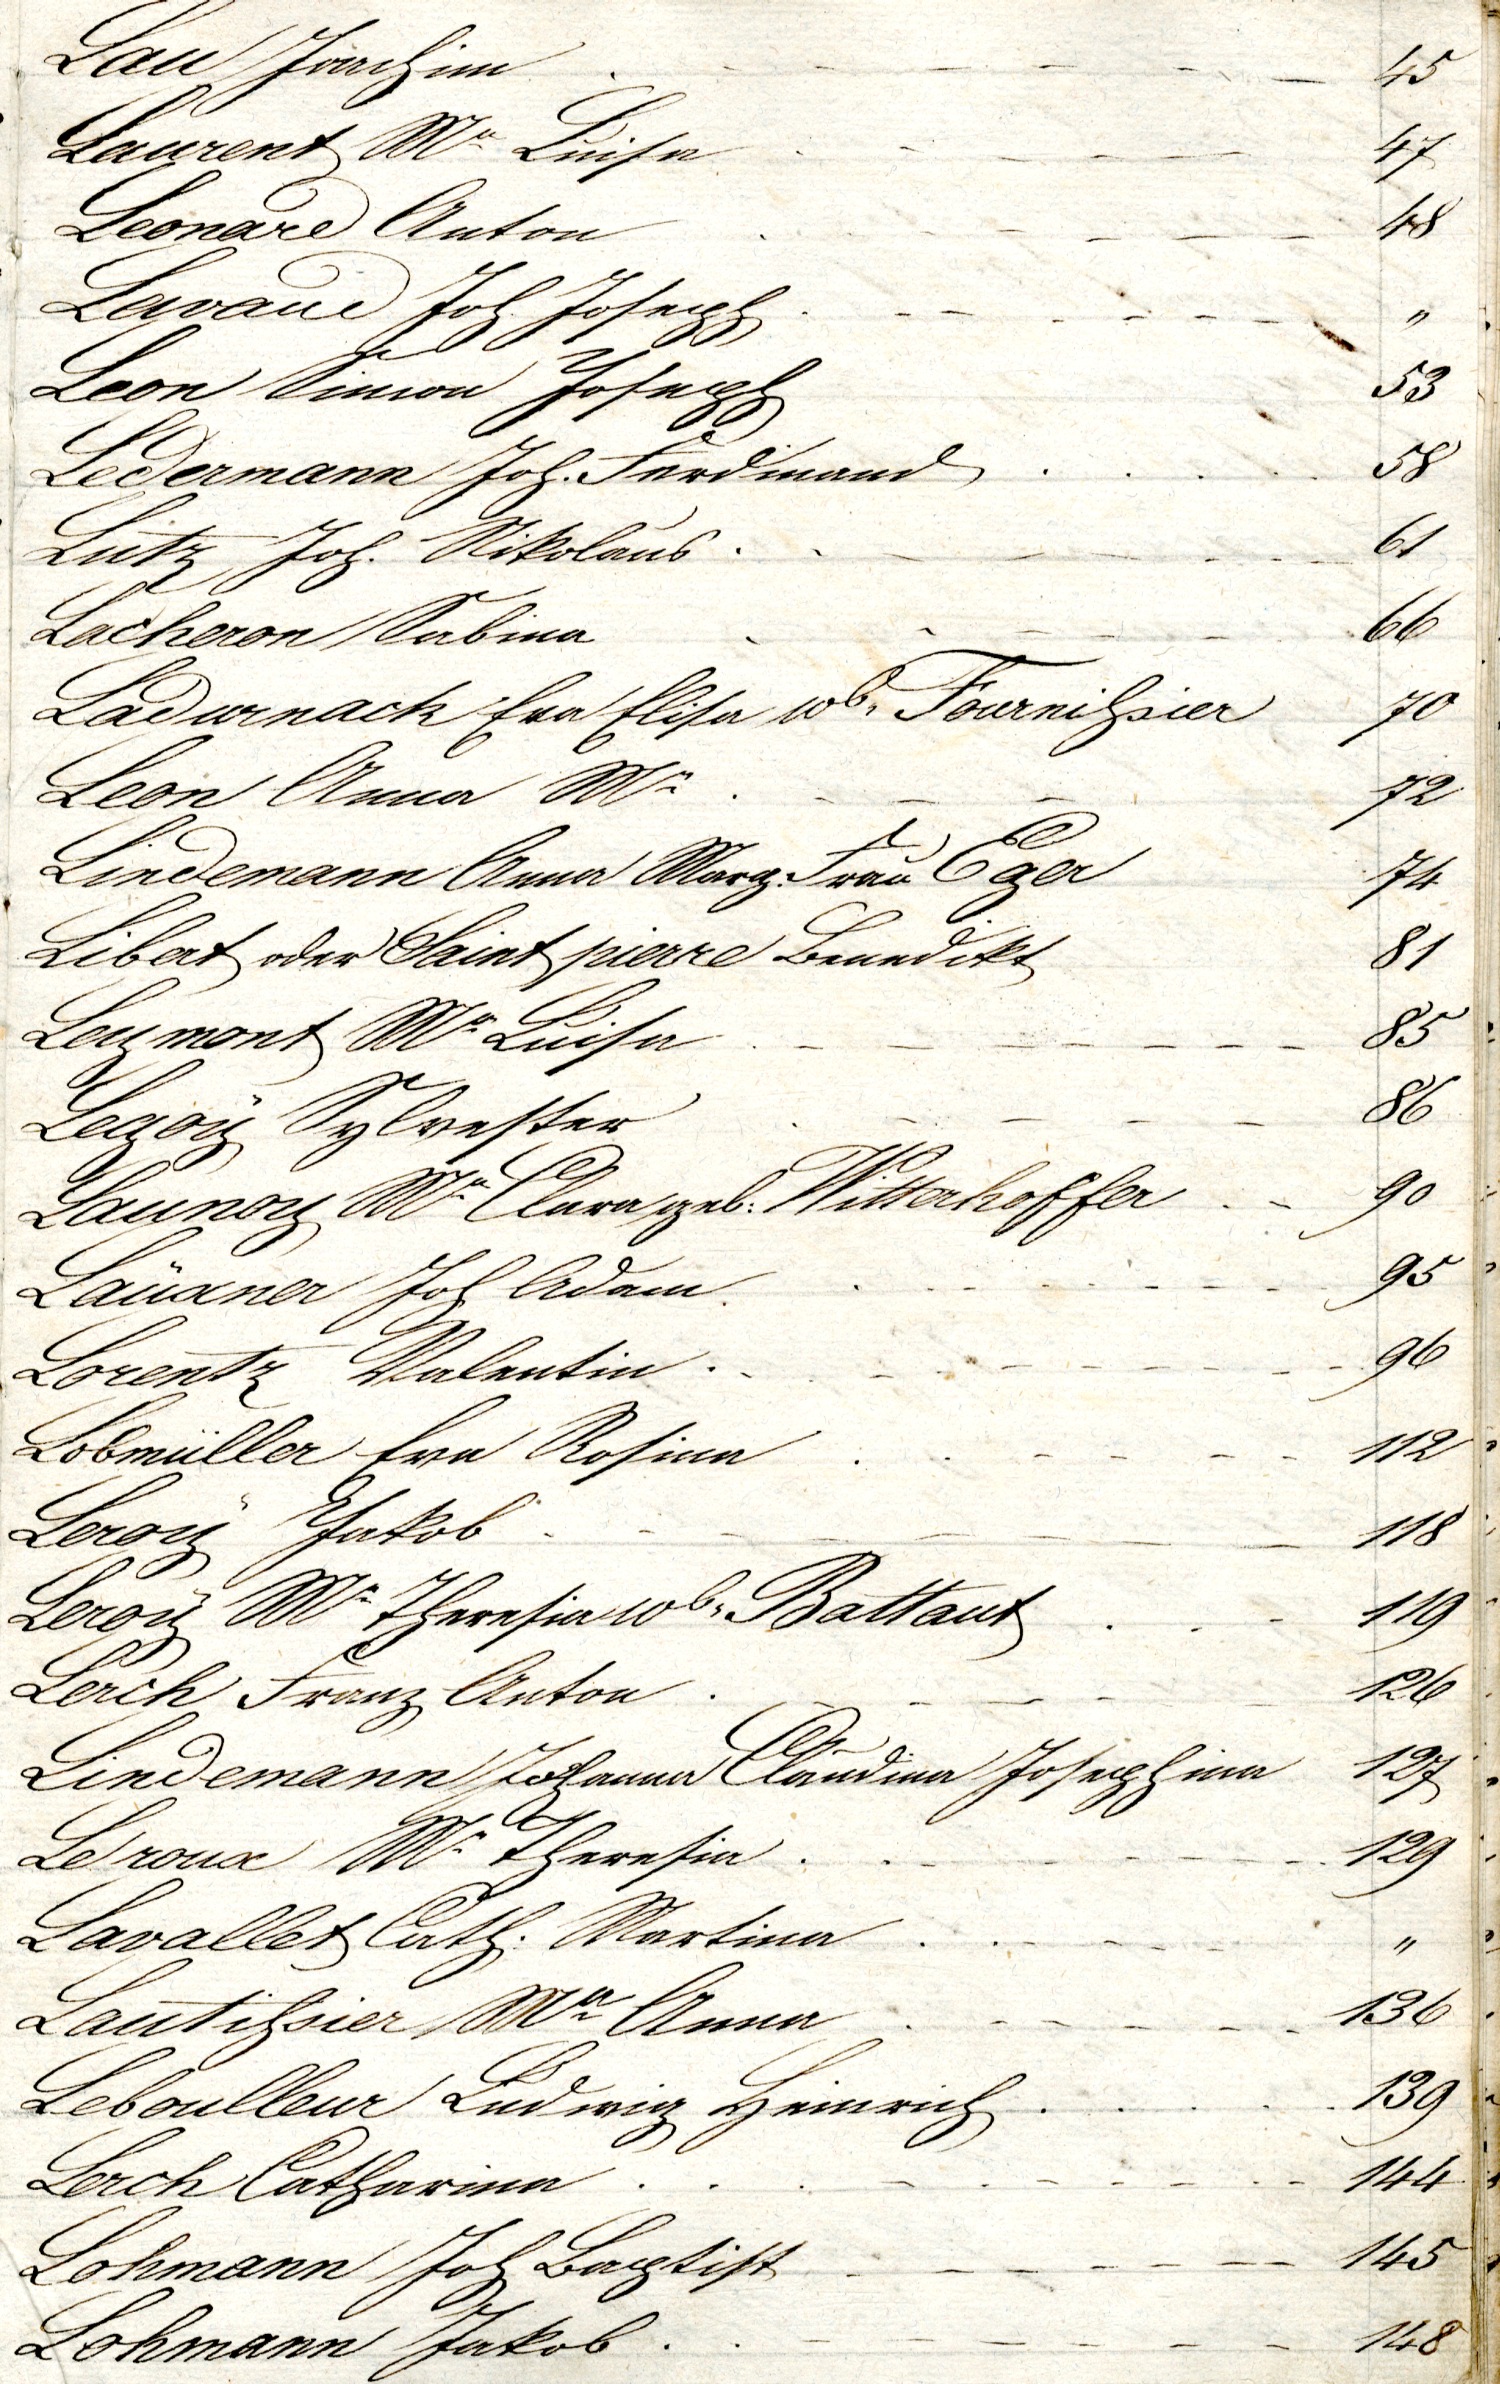 Lau Joachim . - - - - - - - 45
Laurent Mª Luisa . - - - - - 47
Leonard Anton . - - - - - - 48
Lavaud Joh. Joseph . - - - - - - "
Leon Simon Joseph 53
Ledermann Joh. Ferdinand . . . . 58
Lutz Joh. Nikolaus . - - - - - 61
Lacheron Sabina . - - - - 66
Ladurnack Eva Elisa wb. Fournißier 70
Leon Anna Mª . - - - - 72
Lindemann Anna Marg: Frau Eger 74
Libert oder Saint pierre Benedikt 81
Leymont Mª Luisa . - - - - - - - 85
Legoÿ Sylvester . - - - - - 86
Launoy Mª Clara geb: Witterhoffer . - 90
Lauxner Joh Adam . - - - - - 95
Lorentz Valentin . - - - - - - - 96
Lobmüller Eva Rosina . . - - - - 112
Leroÿ Jakob . - - - - - - - - 118
Leroÿ Mª Theresia wb. Battaut . . - 119
Lerch Franz Anton . - - - - - - 126
Lindemann Johanna Claudina Josephina 127
Leroux Mª Theresia . - - - - - - 129
Lavallet Cath: Martina . . - - - - "
Lautißier Mª Anna . - - - - - 136
Leboulleur Ludwig Heinrich . . . . . 139
Lerch Catharina . . . - - - - - 144
Lohmann Joh Baptist - - - - - - 145
Lohmann Jakob . . - - - - - - 148